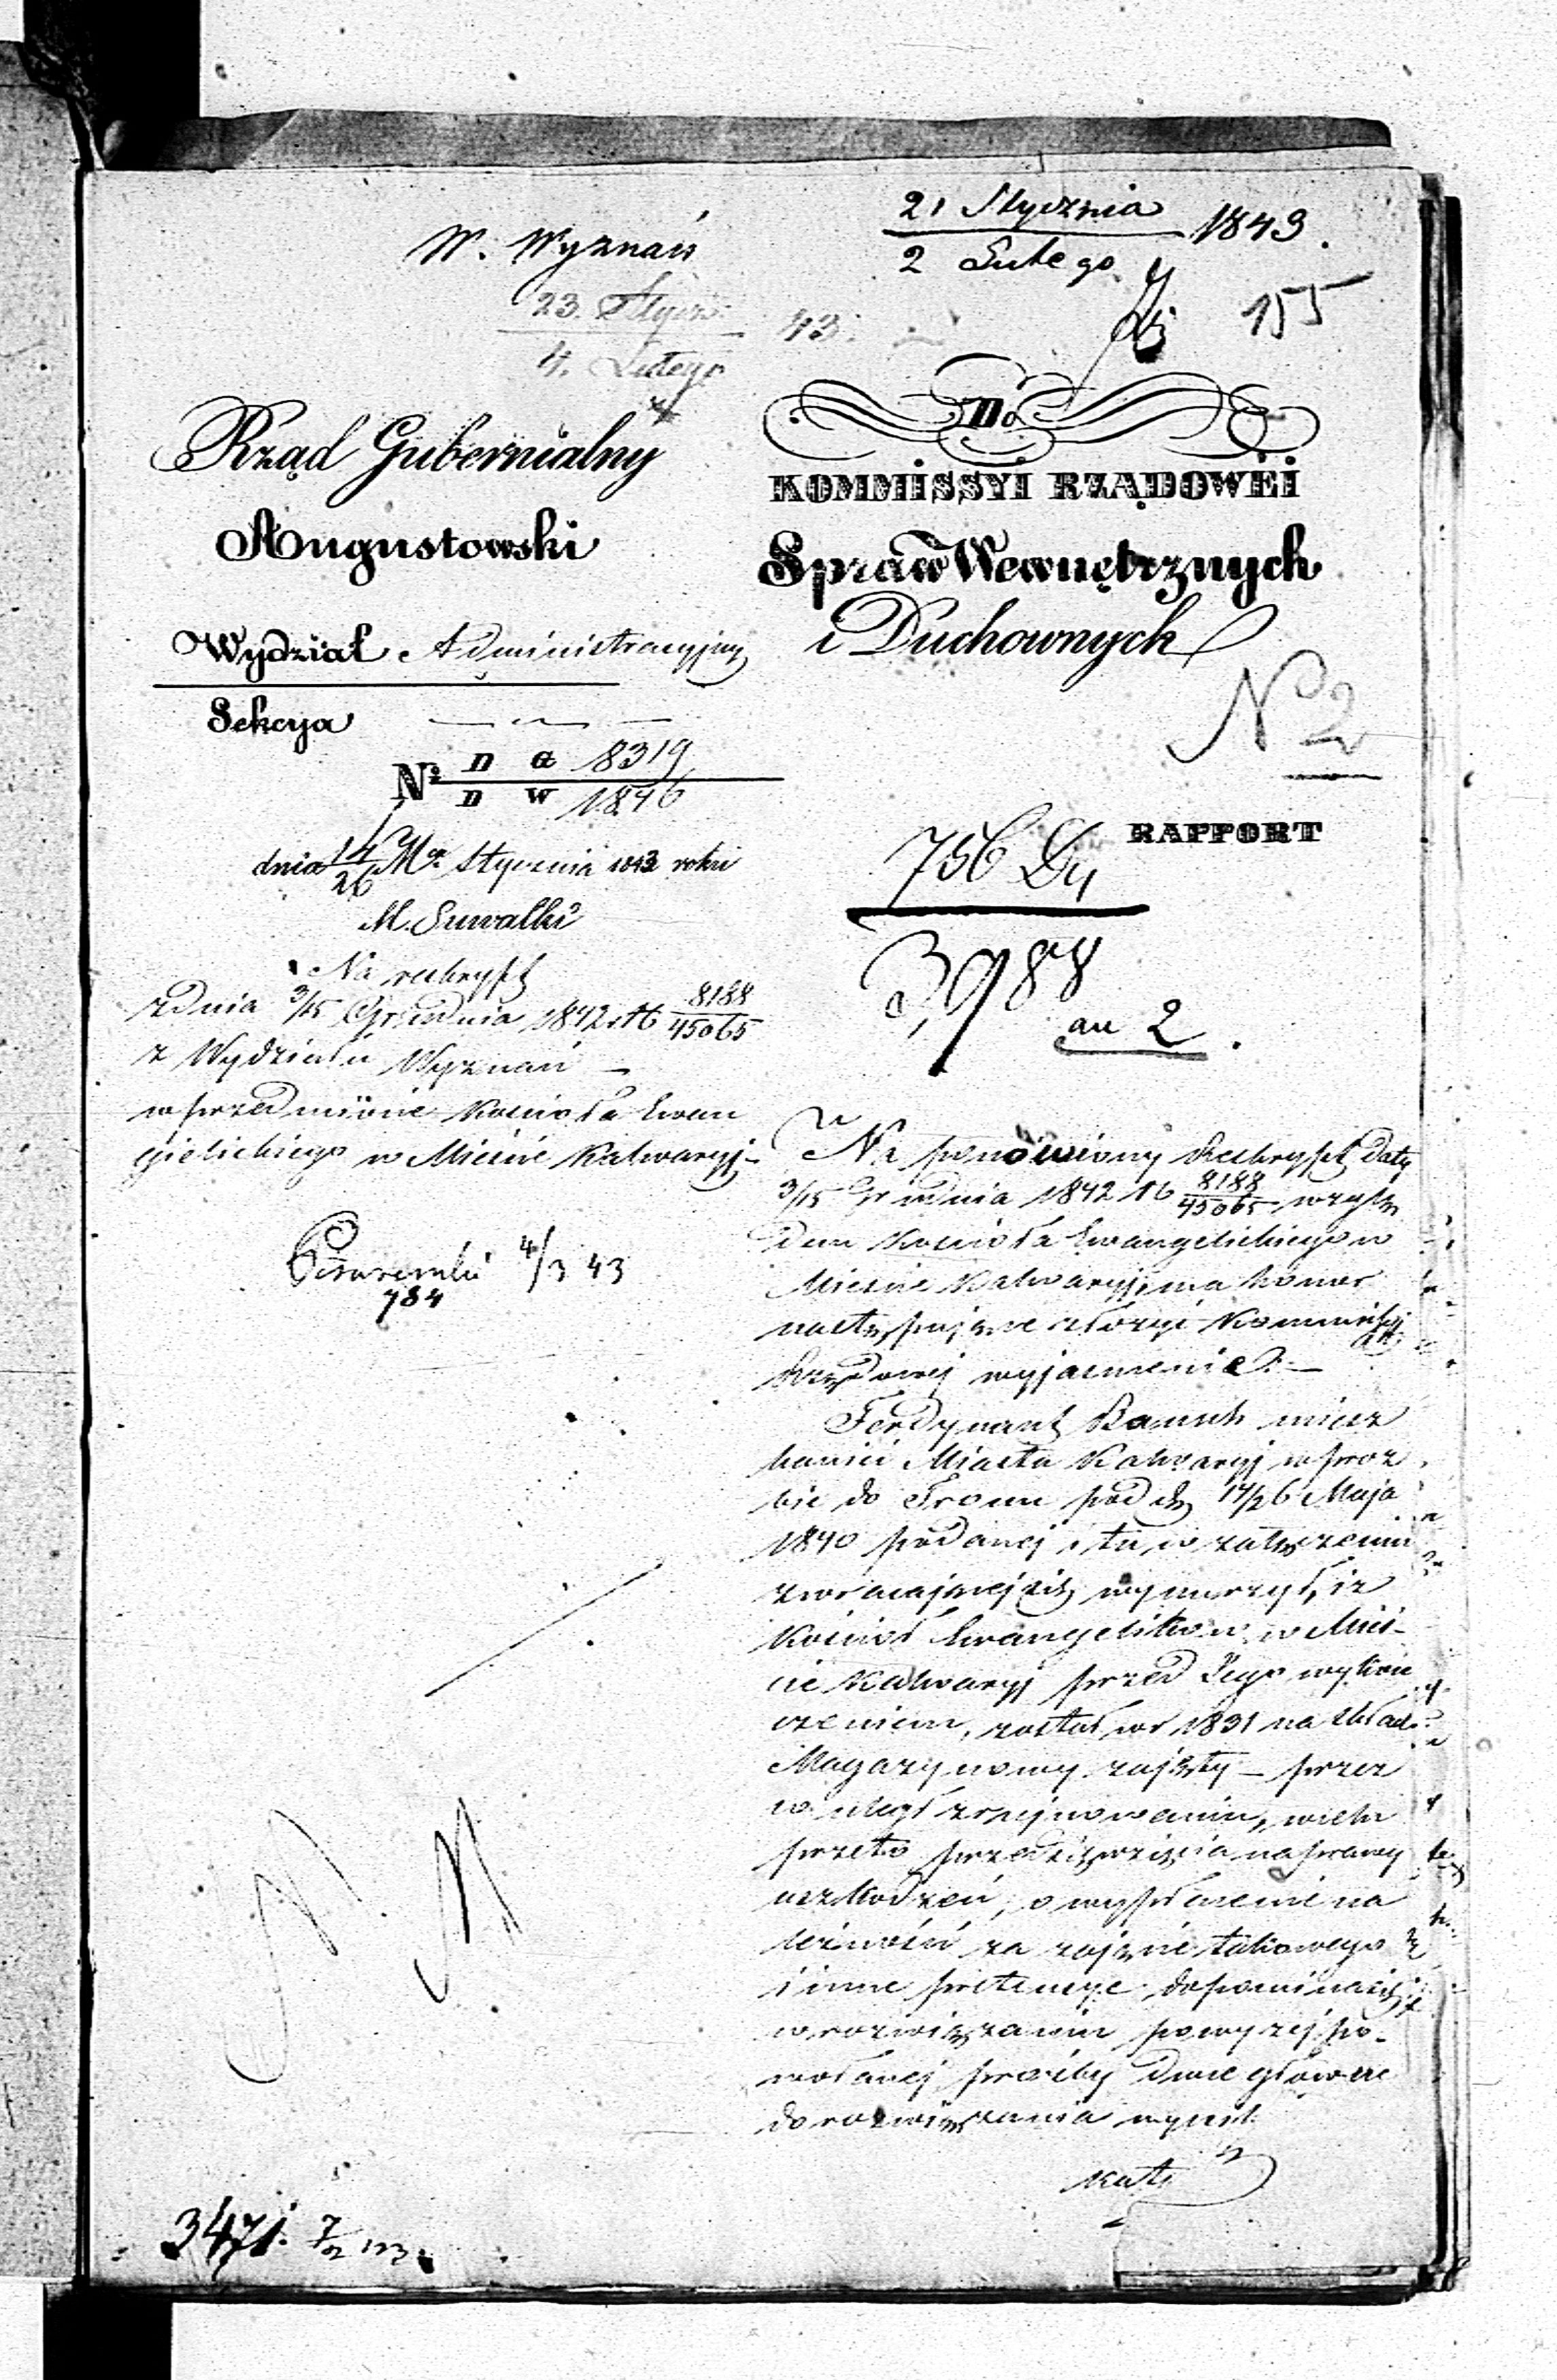 21 Stycznia
2 Lutego 1843.
W. Wyznań
23. Stycz.
4. Lutego 43.
155
Rząd Gubernialny
Augustowski
Wydział Administracyjny
Sekcya
N° D G 8319
D W 1846
dnia 14/26 Mca Stycznia 1843 roku
M. Suwałki
Na reskrypt
z dnia 3/15 Grudnia 1842 N 8188/45065
z Wydziału Wyznań
w przedmiocie Kościoła Ewan
gielickiego w Mieście Kalwaryj
4/3 43
784
3471. 7/2
Do
KOMMISSYI RZĄDOWÉI
Spraw Wewnętrznych
i Duchownych
N 2
RAPPORT
756
3988
an 2.
Na ponowiony Reskrypt daty
3/15 Grudnia 1842 N 8188/45065 wzglę
dem Kościoła Ewangelickiego w
Mieście Kalwaryj, ma honor
następujące złożyć Kommissyj
Rządowej wyjaśnienie.
Ferdynant miesz
kaniec Miasta Kalwaryj w proź
bie do Tronu pod d. 14/26 Maja
1840 podanej i tu w załączeniu
zwracającej się wynurzył, iż
Kościoł Ewangelików w Mieś-
cie Kalwaryj przed Jego wykoń
czeniem, został w r 1831 na skład
Magazynowy zajęty – przez
co uległ zrujnowaniu,
przeto przedsięwzięcia naprawy
uszkodzeń, o wypłacenie na
leżności za zajęcie takowego
i inne pretensye dopomina się
w rozwiązaniu powyżej po-
wołanej prośby dwie główne
do rozwiązania wynik